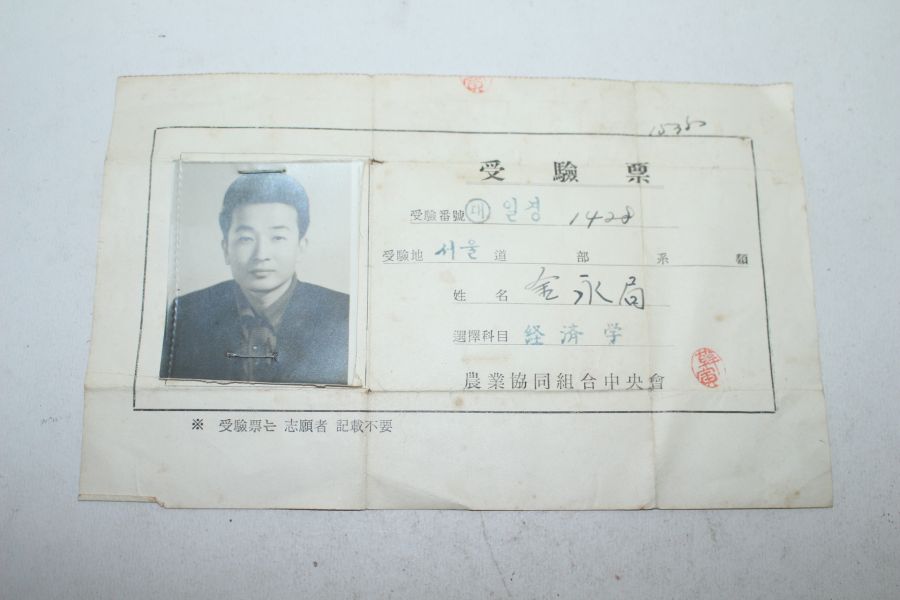 受驗票
受驗番號 대 일경 1428
受驗地 서울 道 部 系 領
姓名 金永局
選擇科目 経済学
農業協同組合中央會
※ 受驗票는 志願者 記載不要